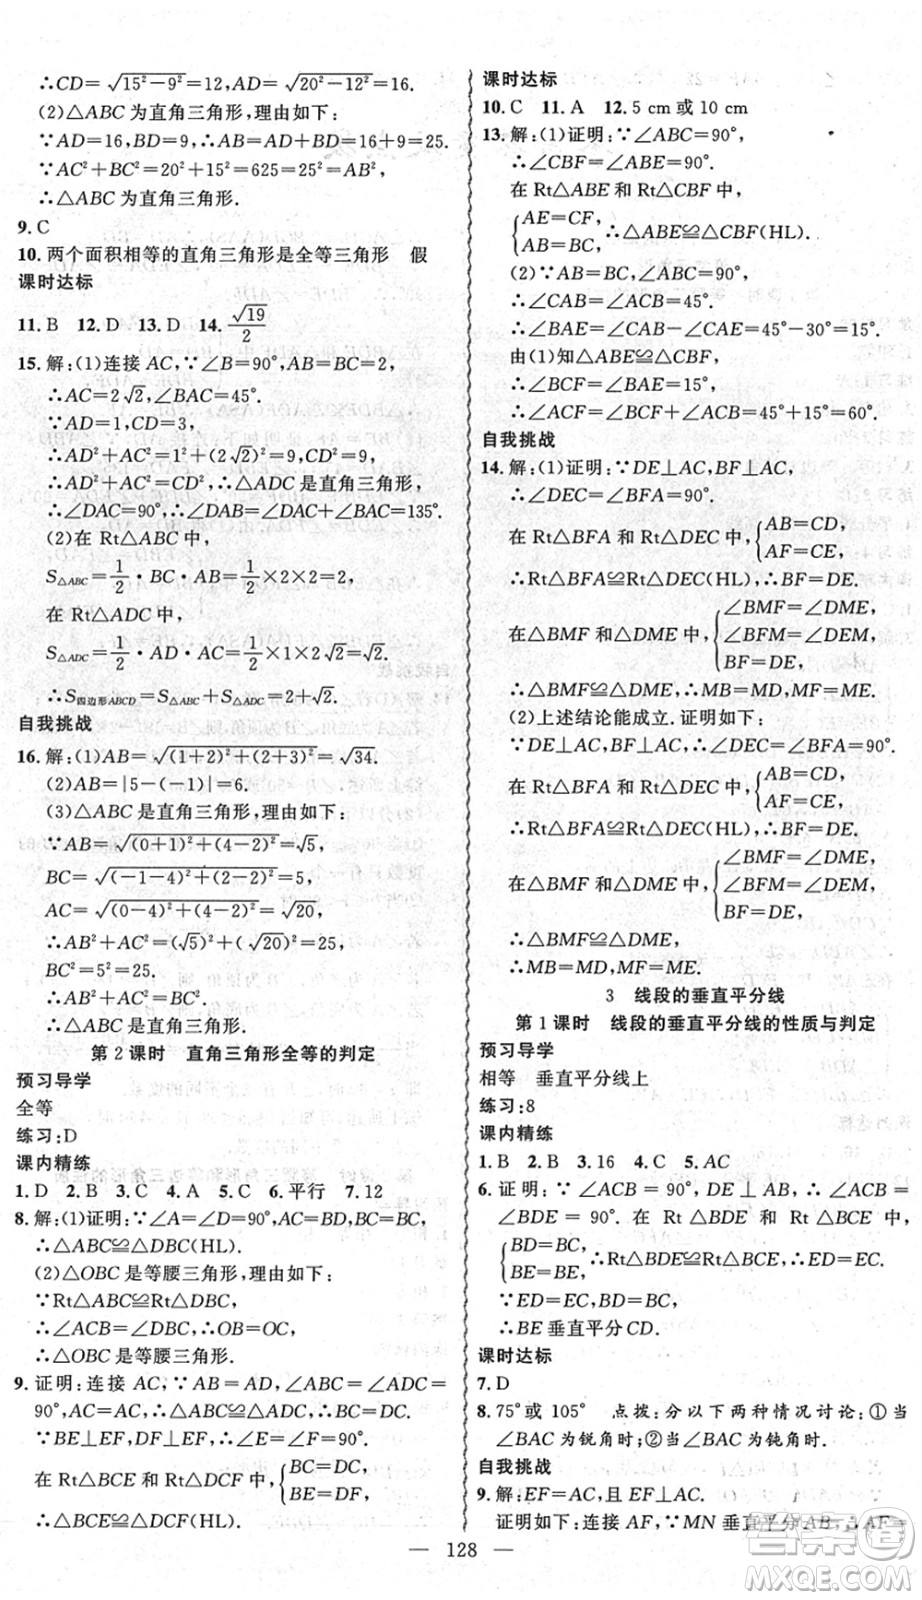 ∴CD=√(15²−9²)=12,AD=√(20²−12²)=16.
(2)△ABC 为直角三角形,理由如下:
∵AD=16,BD=9,∴AB=AD+BD=16+9=25.
∵AC²+BC²=20²+15²=625=25²=AB²,
∴△ABC 为直角三角形.
9.C
10.两个面积相等的直角三角形是全等三角形 假
课时达标
11.B 12.D 13.D 14.√19/2
15.解:(1)连接 AC,∵∠B=90°,AB=BC=2,
∴AC=2√2,∠BAC=45°.
又∵CD=3,DA=1,
∴AD²+AC²=1²+(2√2)²=9=CD².
∴AD²+AC²=CD².∴△ADC 是直角三角形,
∴∠DAC=90°,∴∠DAB=∠DAC+∠BAC=135°.
(2)在 Rt△ABC 中,
S△ABC=1/2·BC·AB=1/2×2×2=2,
在 Rt△ADC 中,
S△ADC=1/2·AD·AC=1/2×1×2√2=√2.
∴S四边形ABCD=S△ABC+S△ADC=2+√2.
自我挑战
16.解:(1)AB=√((1+2)²+(2+3)²)=√34.
(2)AB=|5−(−1)|=6.
(3)△ABC 是直角三角形,理由如下:
∵AB=√((0+1)²+(4−2)²)=√5,
BC=√((−1−4)²+(2−2)²)=5,
AC=√((0−4)²+(4−2)²)=√20,
∴AB²+AC²=(√5)²+(√20)²=25,
BC²=5²=25.
∴AB²+AC²=BC².
∴△ABC 是直角三角形.
第 2 课时 直角三角形全等的判定
预习导学
全等
练习:D
课内精练
1.D 2.B 3.C 4.A 5.C 6.平行 7.12
8.解:(1)证明:∵∠A=∠D=90°,AC=BD,BC=BC,
∴△ABC≌△DBC(HL).
(2)△OBC 是等腰三角形,理由如下:
∵Rt△ABC≌Rt△DBC,
∴∠ACB=∠DBC,∴OB=OC;
∴△OBC 是等腰三角形.
9.证明:连接 AC,∵AB=AD,∠ABC=∠ADC=
90°,AC=AC,∴△ABC≌△ADC,∴BC=DC.
∵BE⊥EF,DF⊥EF,∴∠E=∠F=90°.
在 Rt△BCE 和 Rt△DCF 中,{BC=DC,
BE=DF,
∴△BCE≌△DCF(HL).
课时达标
10.C 11.A 12.5 cm 或 10 cm
13.解:(1)证明:∵∠ABC=90°,
∴∠CBF=∠ABE=90°.
在 Rt△ABE 和 Rt△CBF 中,
{AE=CF,
AB=BC,∴△ABE≌△CBF(HL).
(2)∵AB=BC,∠ABC=90°,
∴∠CAB=∠ACB=45°.
∴∠BAE=∠CAB−∠CAE=45°−30°=15°.
由(1)知△ABE≌△CBF,
∴∠BCF=∠BAE=15°,
∴∠ACF=∠BCF+∠ACB=45°+15°=60°.
自我挑战
14.解:(1)证明:∵DE⊥AC,BF⊥AC,
∴∠DEC=∠BFA=90°.
在 Rt△BFA 和 Rt△DEC 中,{AB=CD,
AF=CE,
∴Rt△BFA≌Rt△DEC(HL),∴BF=DE.
在△BMF 和△DME 中,{∠BMF=∠DME,
∠BFM=∠DEM,
BF=DE,
∴△BMF≌△DME.∴MB=MD,MF=ME.
(2)上述结论能成立.证明如下:
∵DE⊥AC,BF⊥AC,∴∠DEC=∠BFA=90°.
在 Rt△BFA 和 Rt△DEC 中,{AB=CD,
AF=CE,
∴Rt△BFA≌Rt△DEC(HL),∴BF=DE.
在△BMF 和△DME 中,{∠BMF=∠DME,
∠BFM=∠DEM,
BF=DE,
∴△BMF≌△DME,
∴MB=MD,MF=ME.
3 线段的垂直平分线
第 1 课时 线段的垂直平分线的性质与判定
预习导学
相等 垂直平分线上
练习:8
课内精练
1.B 2.B 3.16 4.C 5.AC
6.证明:∵∠ACB=90°,DE⊥AB,∴∠ACB=
∠BDE=90°.在 Rt△BDE 和 Rt△BCE 中,
{BD=BC,
BE=BE,∴Rt△BDE≌Rt△BCE,∴ED=EC.
∵ED=EC,BD=BC,
∴BE 垂直平分CD.
课时达标
7.D
8.75°或 105° 点拨:分以下两种情况讨论:①当
∠BAC为锐角时;②当∠BAC为钝角时.
自我挑战
9.解:EF=AC,且 EF⊥AC.
证明如下:连接 AF,∵MN垂直平分AB,∴AF=
— 128 —
答案圈
MXQE.COM